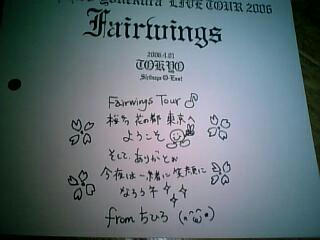 LIVE TOUR 2006
Fairwings
2006.4.01
TOKYO
Shibuya O-East
Fairwings Tour♪
桜も花の都 東京へ
ようこそ
そして、ありがとお
今夜は一緒に笑顔に
なろうネ
from ちひろ (・ω・)